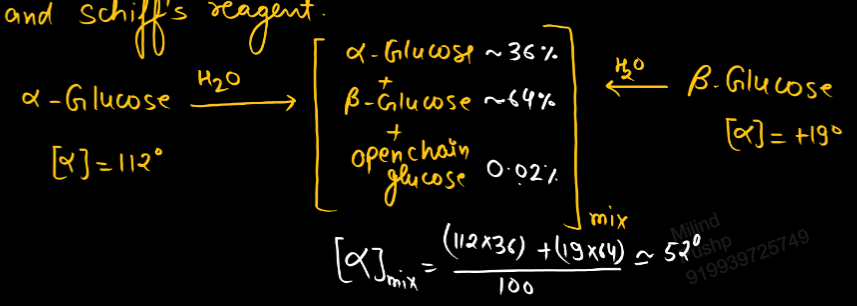 and schiff's reagent.
α-Glucose H₂O → [ α-Glucose ~36%
+
β-Glucose ~64%
+
openchain glucose 0.02% ]mix
← H₂O β-Glucose
[α]=112°
[α]=+19°
[α]mix = (112×36)+(19×64) / 100 ≃ 52°
Milind
919939725749